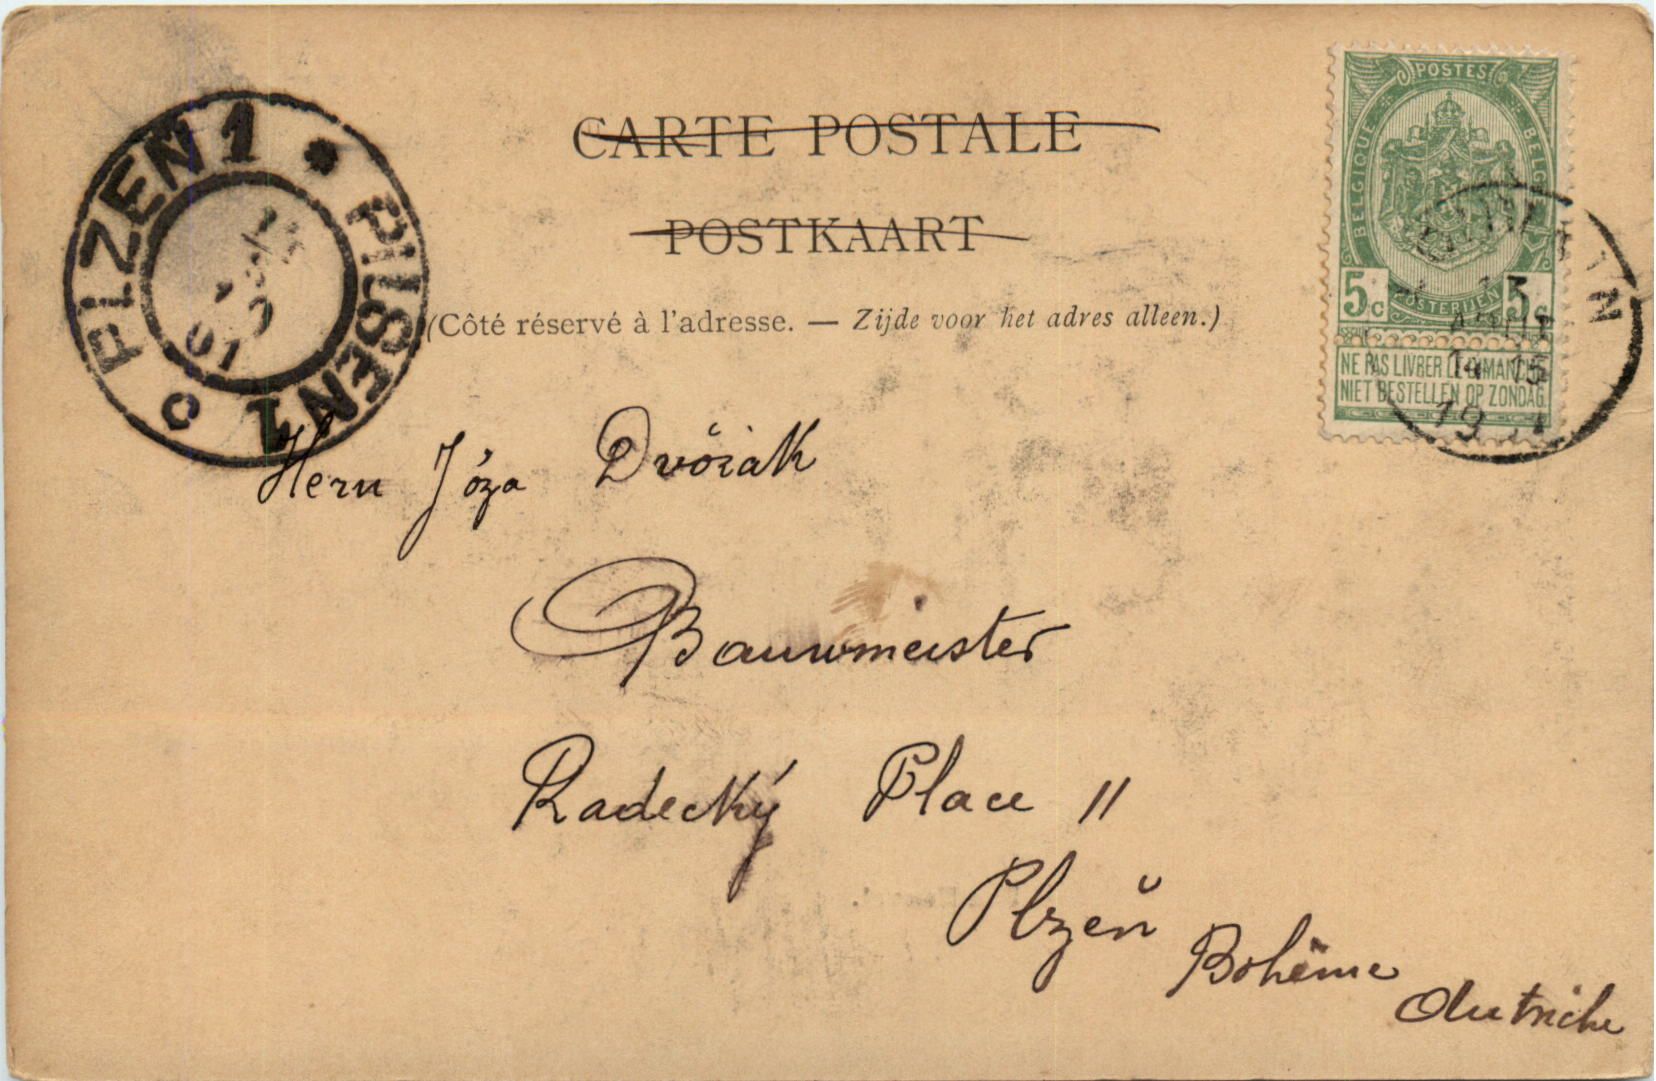 CARTE POSTALE
POSTKAART
(Côté réservé à l'adresse. — Zijde voor het adres alleen.)
PLZEN 1 * PILSEN 1
c
01
POSTES
BELGIQUE
POSTERIJEN
5c 5c
NE PAS LIVRER LE DIMANCHE
NIET BESTELLEN OP ZONDAG
13
14-15
19
Herrn Józa Dvořák
Bauwmeister
Radecký Place 11
Plzeň
Bohême
Autriche